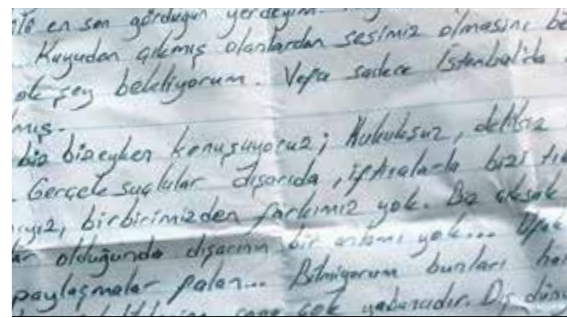 en son gördüğün yerdeyim.
Kuyudan çıkmış olanlardan sesimiz olmasını be
ok şey bekliyorum. Vefa sadece İstanbul'da
mış.
biz bizeyken konuşuyoruz; Hukuksuz, delilsiz
Gerçek suçlular dışarıda, iftiralarla bizi tık
ıyız, birbirimizden farkımız yok. Biz
ar olduğunda dışarının bir anlamı yok...
paylaşmalar falan... Bilmiyorum bunları
çok yabancıdır. Dış dünya